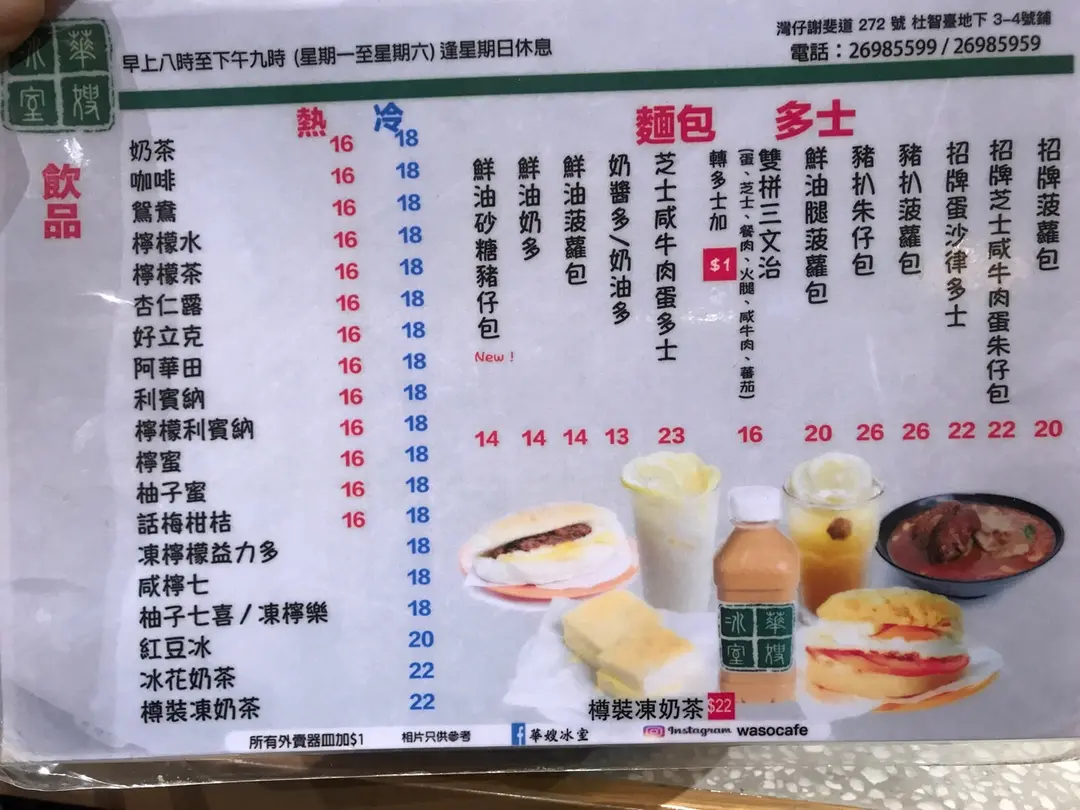 華嫂冰室
早上八時至下午九時 (星期一至星期六) 逢星期日休息
灣仔謝斐道 272 號 杜智臺地下 3-4號鋪
電話：26985599 / 26985959
飲品
熱 冷
奶茶 16 18
咖啡 16 18
鴛鴦 16 18
檸檬水 16 18
檸檬茶 16 18
杏仁露 16 18
好立克 16 18
阿華田 16 18
利賓納 16 18
檸檬利賓納 16 18
檸蜜 16 18
柚子蜜 16 18
話梅柑桔 16 18
凍檸檬益力多 18
咸檸七 18
柚子七喜 / 凍檸樂 18
紅豆冰 20
冰花奶茶 22
樽裝凍奶茶 22
麵包 多士
招牌菠蘿包 20
招牌芝士咸牛肉蛋朱仔包 22
招牌蛋沙律多士 22
豬扒菠蘿包 26
豬扒朱仔包 26
鮮油腿菠蘿包 20
雙拼三文治 16
(蛋、芝士、餐肉、火腿、咸牛肉、蕃茄)
轉多士加 $1
芝士咸牛肉蛋多士 23
奶醬多/奶油多 13
鮮油菠蘿包 14
鮮油奶多 14
鮮油砂糖豬仔包 New ! 14
華嫂冰室
樽裝凍奶茶 $22
所有外賣器皿加$1
相片只供參考
華嫂冰室
Instagram wasocafe